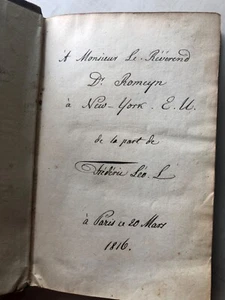 À Monsieur Le Révérend
Dr Romeyn
à New-York. E. U.
de la part de
Frédéric Léo. L
à Paris ce 20 Mars
1816.